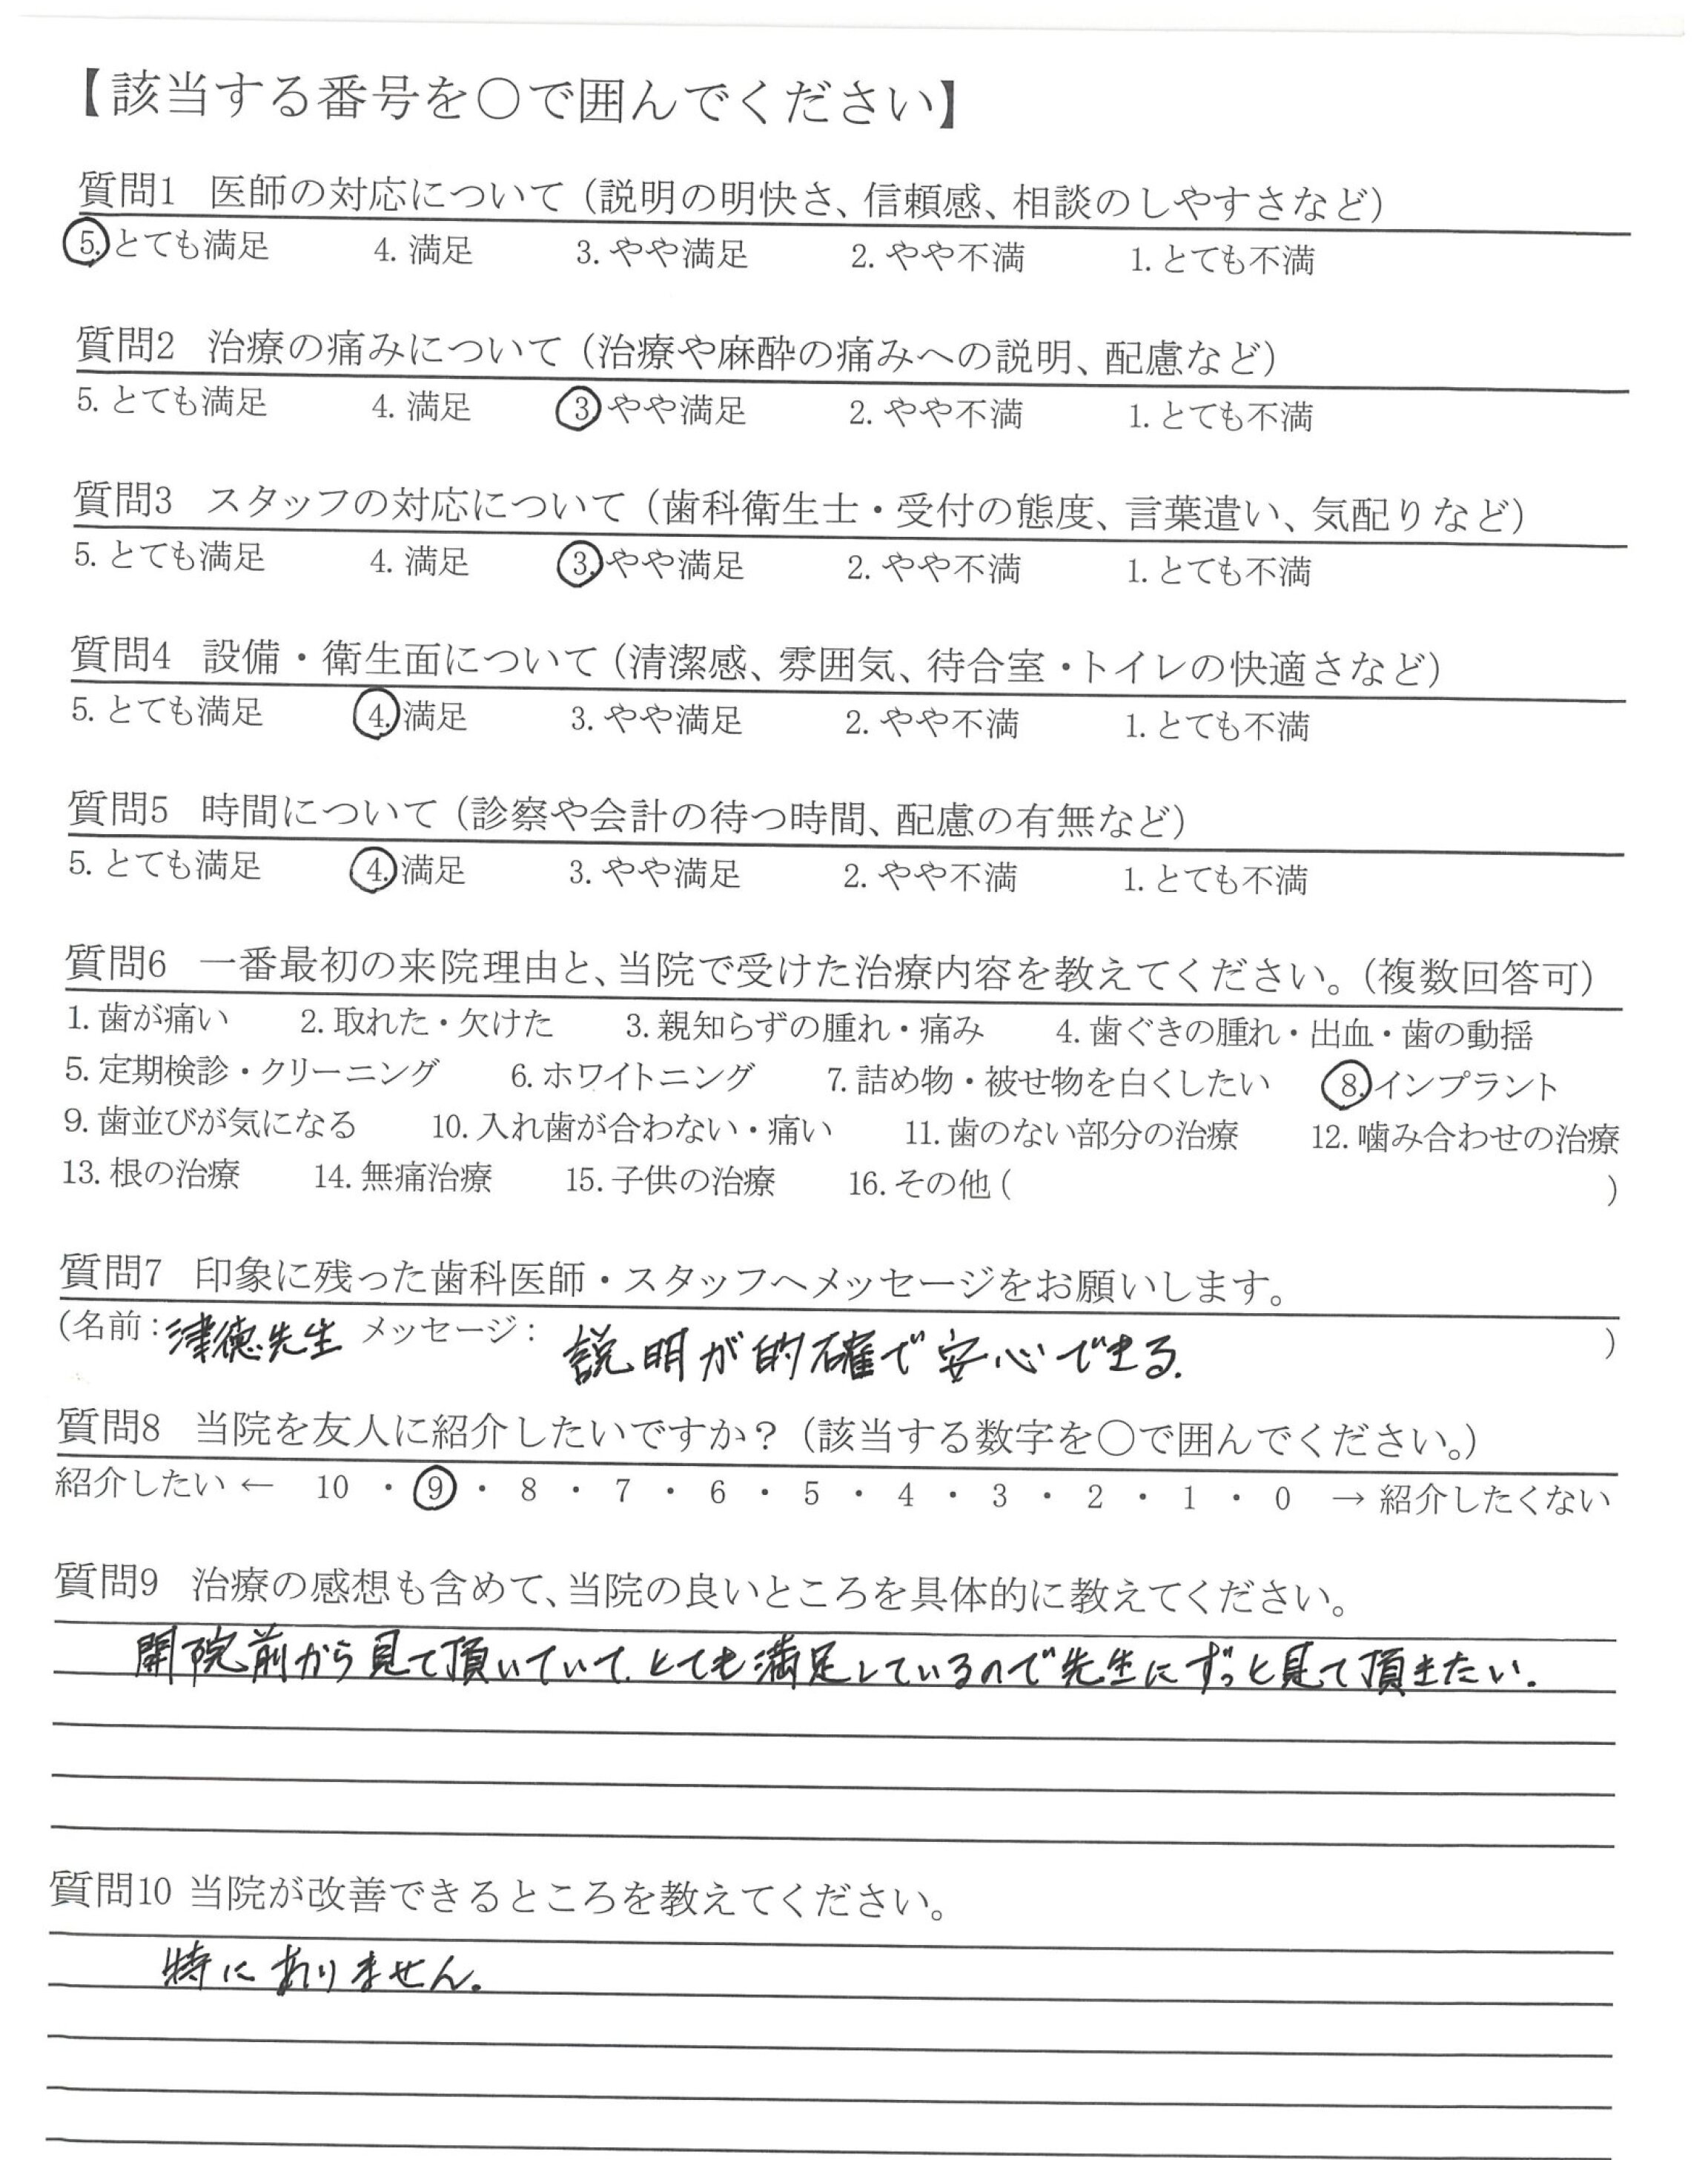 【該当する番号を〇で囲んでください】
質問1 医師の対応について（説明の明快さ、信頼感、相談のしやすさなど）
5. とても満足 4. 満足 3. やや満足 2. やや不満 1. とても不満
質問2 治療の痛みについて（治療や麻酔の痛みへの説明、配慮など）
5. とても満足 4. 満足 3. やや満足 2. やや不満 1. とても不満
質問3 スタッフの対応について（歯科衛生士・受付の態度、言葉遣い、気配りなど）
5. とても満足 4. 満足 3. やや満足 2. やや不満 1. とても不満
質問4 設備・衛生面について（清潔感、雰囲気、待合室・トイレの快適さなど）
5. とても満足 4. 満足 3. やや満足 2. やや不満 1. とても不満
質問5 時間について（診察や会計の待つ時間、配慮の有無など）
5. とても満足 4. 満足 3. やや満足 2. やや不満 1. とても不満
質問6 一番最初の来院理由と、当院で受けた治療内容を教えてください。（複数回答可）
1. 歯が痛い 2. 取れた・欠けた 3. 親知らずの腫れ・痛み 4. 歯ぐきの腫れ・出血・歯の動揺
5. 定期検診・クリーニング 6. ホワイトニング 7. 詰め物・被せ物を白くしたい 8. インプラント
9. 歯並びが気になる 10. 入れ歯が合わない・痛い 11. 歯のない部分の治療 12. 噛み合わせの治療
13. 根の治療 14. 無痛治療 15. 子供の治療 16. その他（ ）
質問7 印象に残った歯科医師・スタッフへメッセージをお願いします。
（名前：津徳先生 メッセージ： 説明が的確で安心できる. ）
質問8 当院を友人に紹介したいですか？（該当する数字を〇で囲んでください。）
紹介したい ← 10 ・ 9 ・ 8 ・ 7 ・ 6 ・ 5 ・ 4 ・ 3 ・ 2 ・ 1 ・ 0 → 紹介したくない
質問9 治療の感想も含めて、当院の良いところを具体的に教えてください。
開院前から見て頂いていて、とても満足しているので先生にずっと見て頂きたい.
質問10 当院が改善できるところを教えてください。
特にありません。